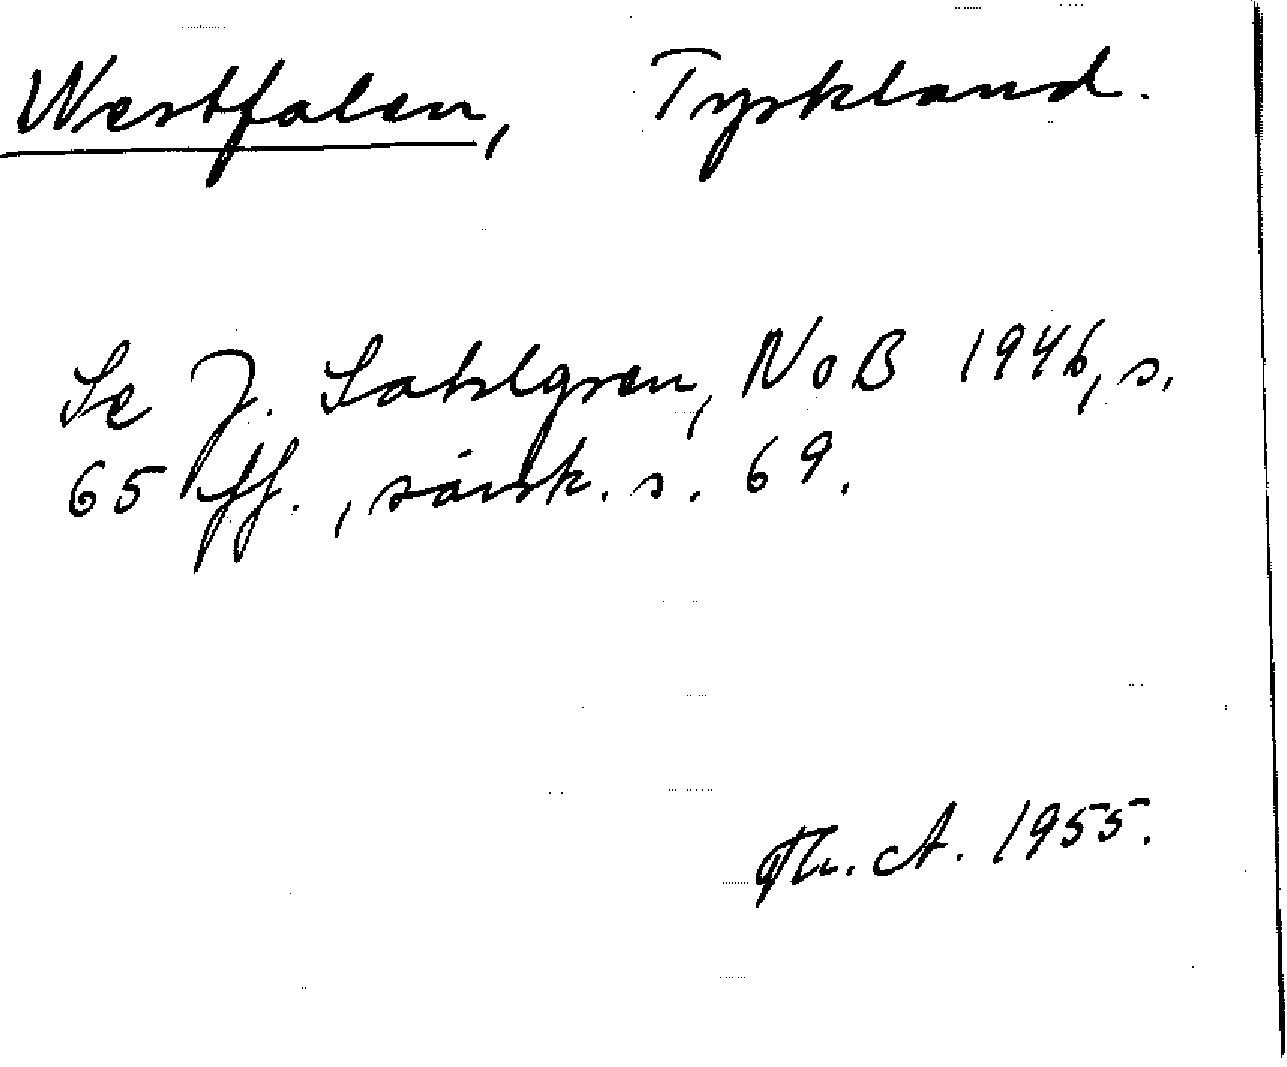 Westfalen, Tyskland.
Se J. Sahlgren, NoB 1946, s.
65 ff., särsk. s. 69.
Th. A. 1955.